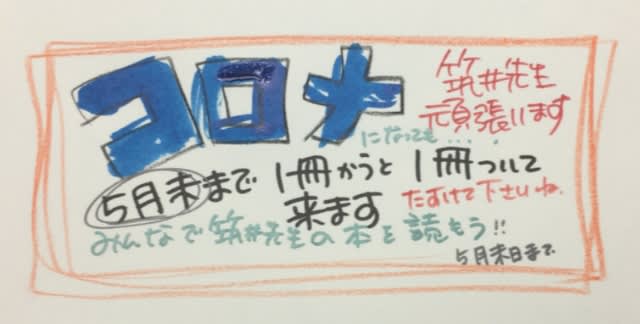 コロナ
になっても....
筑井先生
頑張ります
5月末まで 1冊かうと 1冊ついて
来ます
たすけて下さいね.
みんなで筑井先生の本を読もう!!
5月末日まで